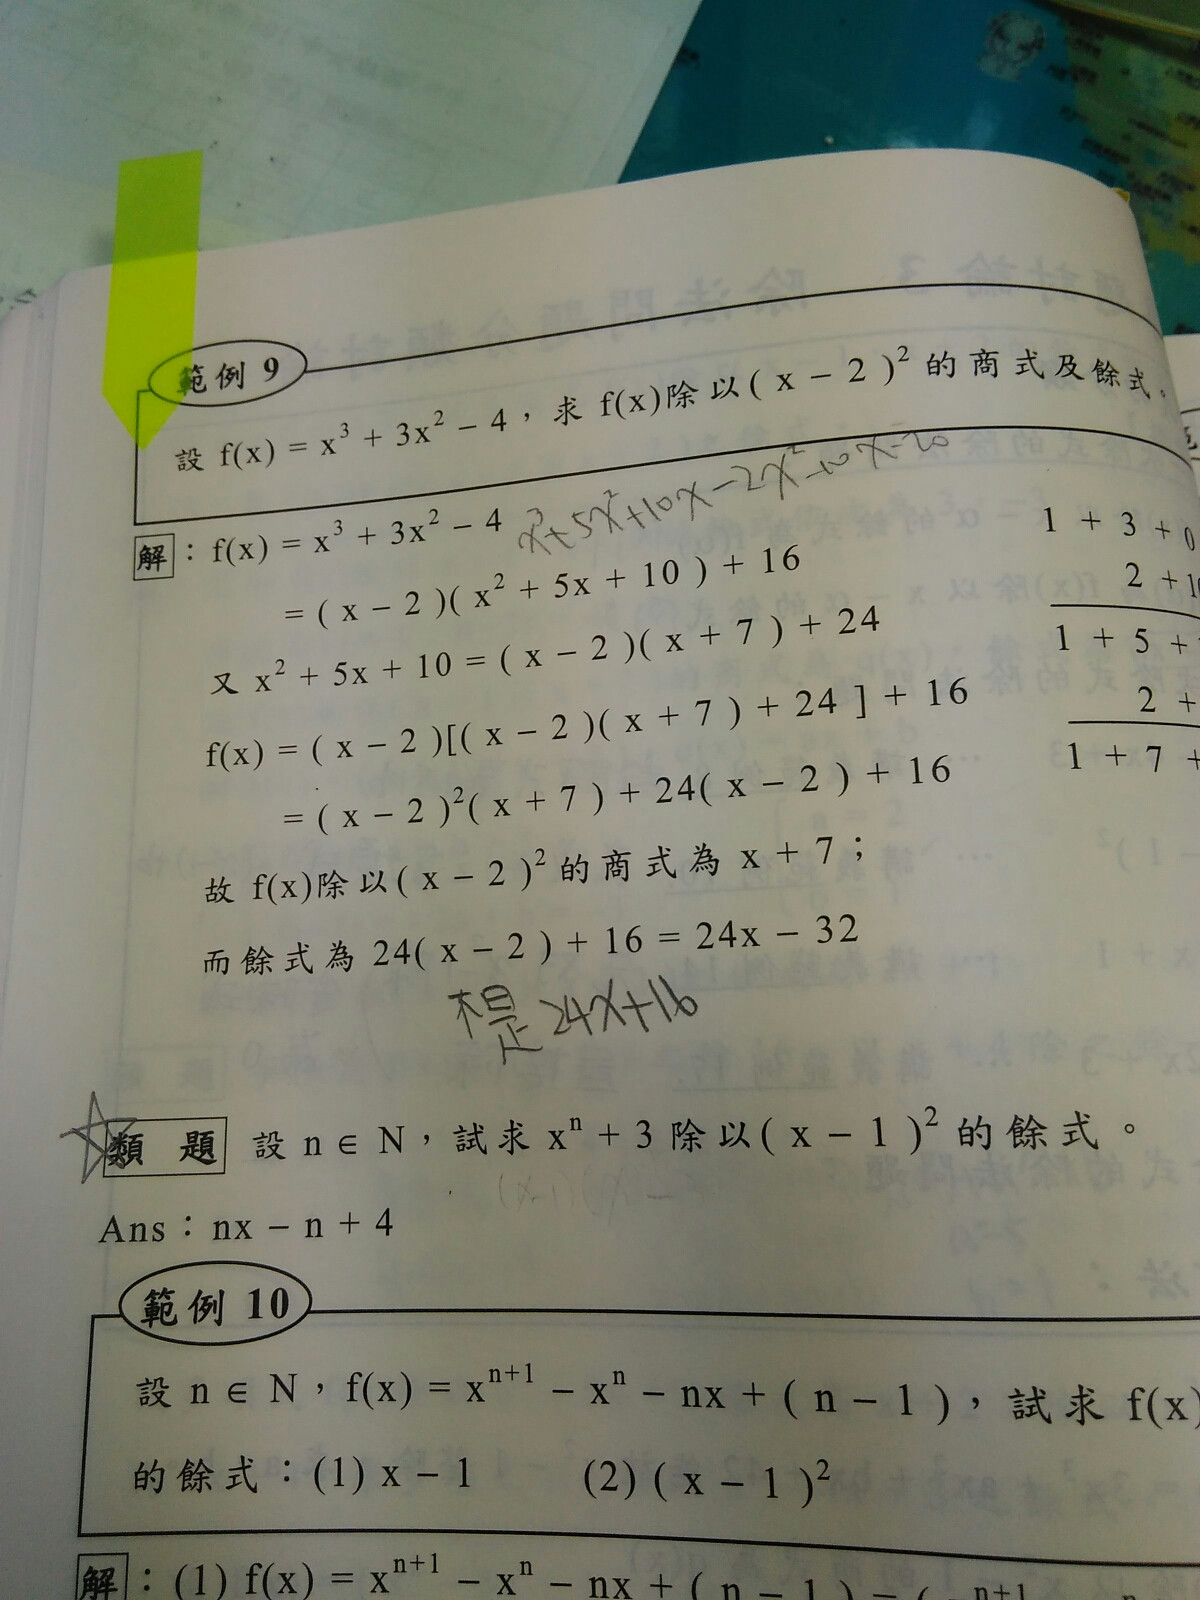 範例 9
設 f(x) = x³ + 3x² − 4，求 f(x)除以( x − 2 )² 的商式及餘式。
x³+5x²+10x−2x²−10x−20
解：f(x) = x³ + 3x² − 4
= ( x − 2 )( x² + 5x + 10 ) + 16
又 x² + 5x + 10 = ( x − 2 )( x + 7 ) + 24
f(x) = ( x − 2 )[( x − 2 )( x + 7 ) + 24 ] + 16
= ( x − 2 )²( x + 7 ) + 24( x − 2 ) + 16
故 f(x)除以( x − 2 )² 的商式為 x + 7；
而餘式為 24( x − 2 ) + 16 = 24x − 32
不是 24x+16
1 + 3 + 0
2 + 10
1 + 5 +
2 +
1 + 7 +
類題 設 n ∈ N，試求 xⁿ + 3 除以( x − 1 )² 的餘式。
Ans：nx − n + 4
範例 10
設 n ∈ N，f(x) = xⁿ⁺¹ − xⁿ − nx + ( n − 1 )，試求 f(x)
的餘式：(1) x − 1 (2) ( x − 1 )²
解：(1) f(x) = xⁿ⁺¹ − xⁿ − nx + ( n − 1 ) = (